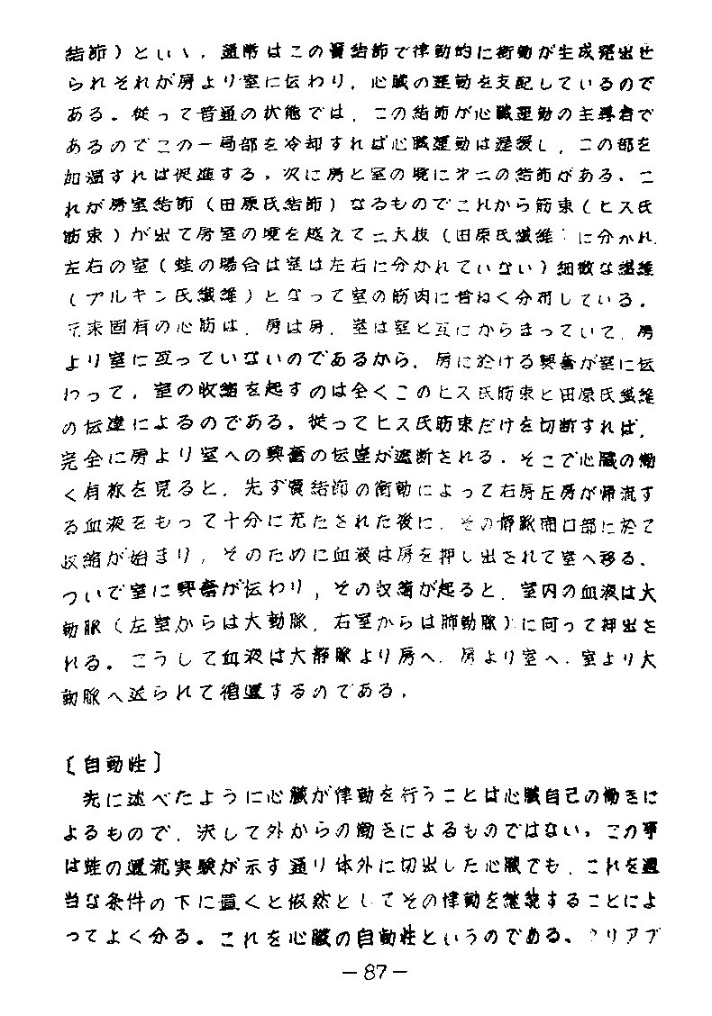 結節)といい,通常はこの竇結節で律動的に衝動が生成発出せ
られそれが房より室に伝わり,心臓の運動を支配しているので
ある。従って普通の状態では,この結節が心臓運動の主導者で
あるのでこの一局部を冷却すれば心臓運動は遅緩し,この部を
加温すれば促進する。次に房と室の境に第二の結節がある。こ
れが房室結節(田原氏結節)なるものでこれから筋束(ヒス氏
筋束)が出て房室の境を越えて二大枝(田原氏繊維)に分かれ,
左右の室(蛙の場合は室は左右に分かれていない)細微な繊維
(プルキン氏繊維)となって室の筋肉に普ねく分布している。
元来固有の心筋は,房は房,室は室と互にからまっていて,房
より室に亙っていないのであるから,房に於ける興奮が室に伝
わって,室の収縮を起すのは全くこのヒス氏筋束と田原氏繊維
の伝達によるのである。従ってヒス氏筋束だけを切断すれば,
完全に房より室への興奮の伝達が遮断される。そこで心臓の働
く有様を見ると,先ず竇結節の衝動によって右房左房が帰流す
る血液をもって十分に充たされた後に,その静脈開口部に於て
収縮が始まり,そのために血液は房を押し出されて室へ移る。
ついで室に興奮が伝わり,その収縮が起ると,室内の血液は大
動脈(左室からは大動脈,右室からは肺動脈)に向って押出さ
れる。こうして血液は大静脈より房へ,房より室へ,室より大
動脈へ送られて循環するのである。
〔自動性〕
先に述べたように心臓が律動を行うことは心臓自己の働きに
よるもので,決して外からの働きによるものではない。この事
は蛙の還流実験が示す通り体外に切出した心臓でも,これを適
当な条件の下に置くと依然としてその律動を継続することによ
ってよく分る。これを心臓の自動性というのである。クリアブ
-87-